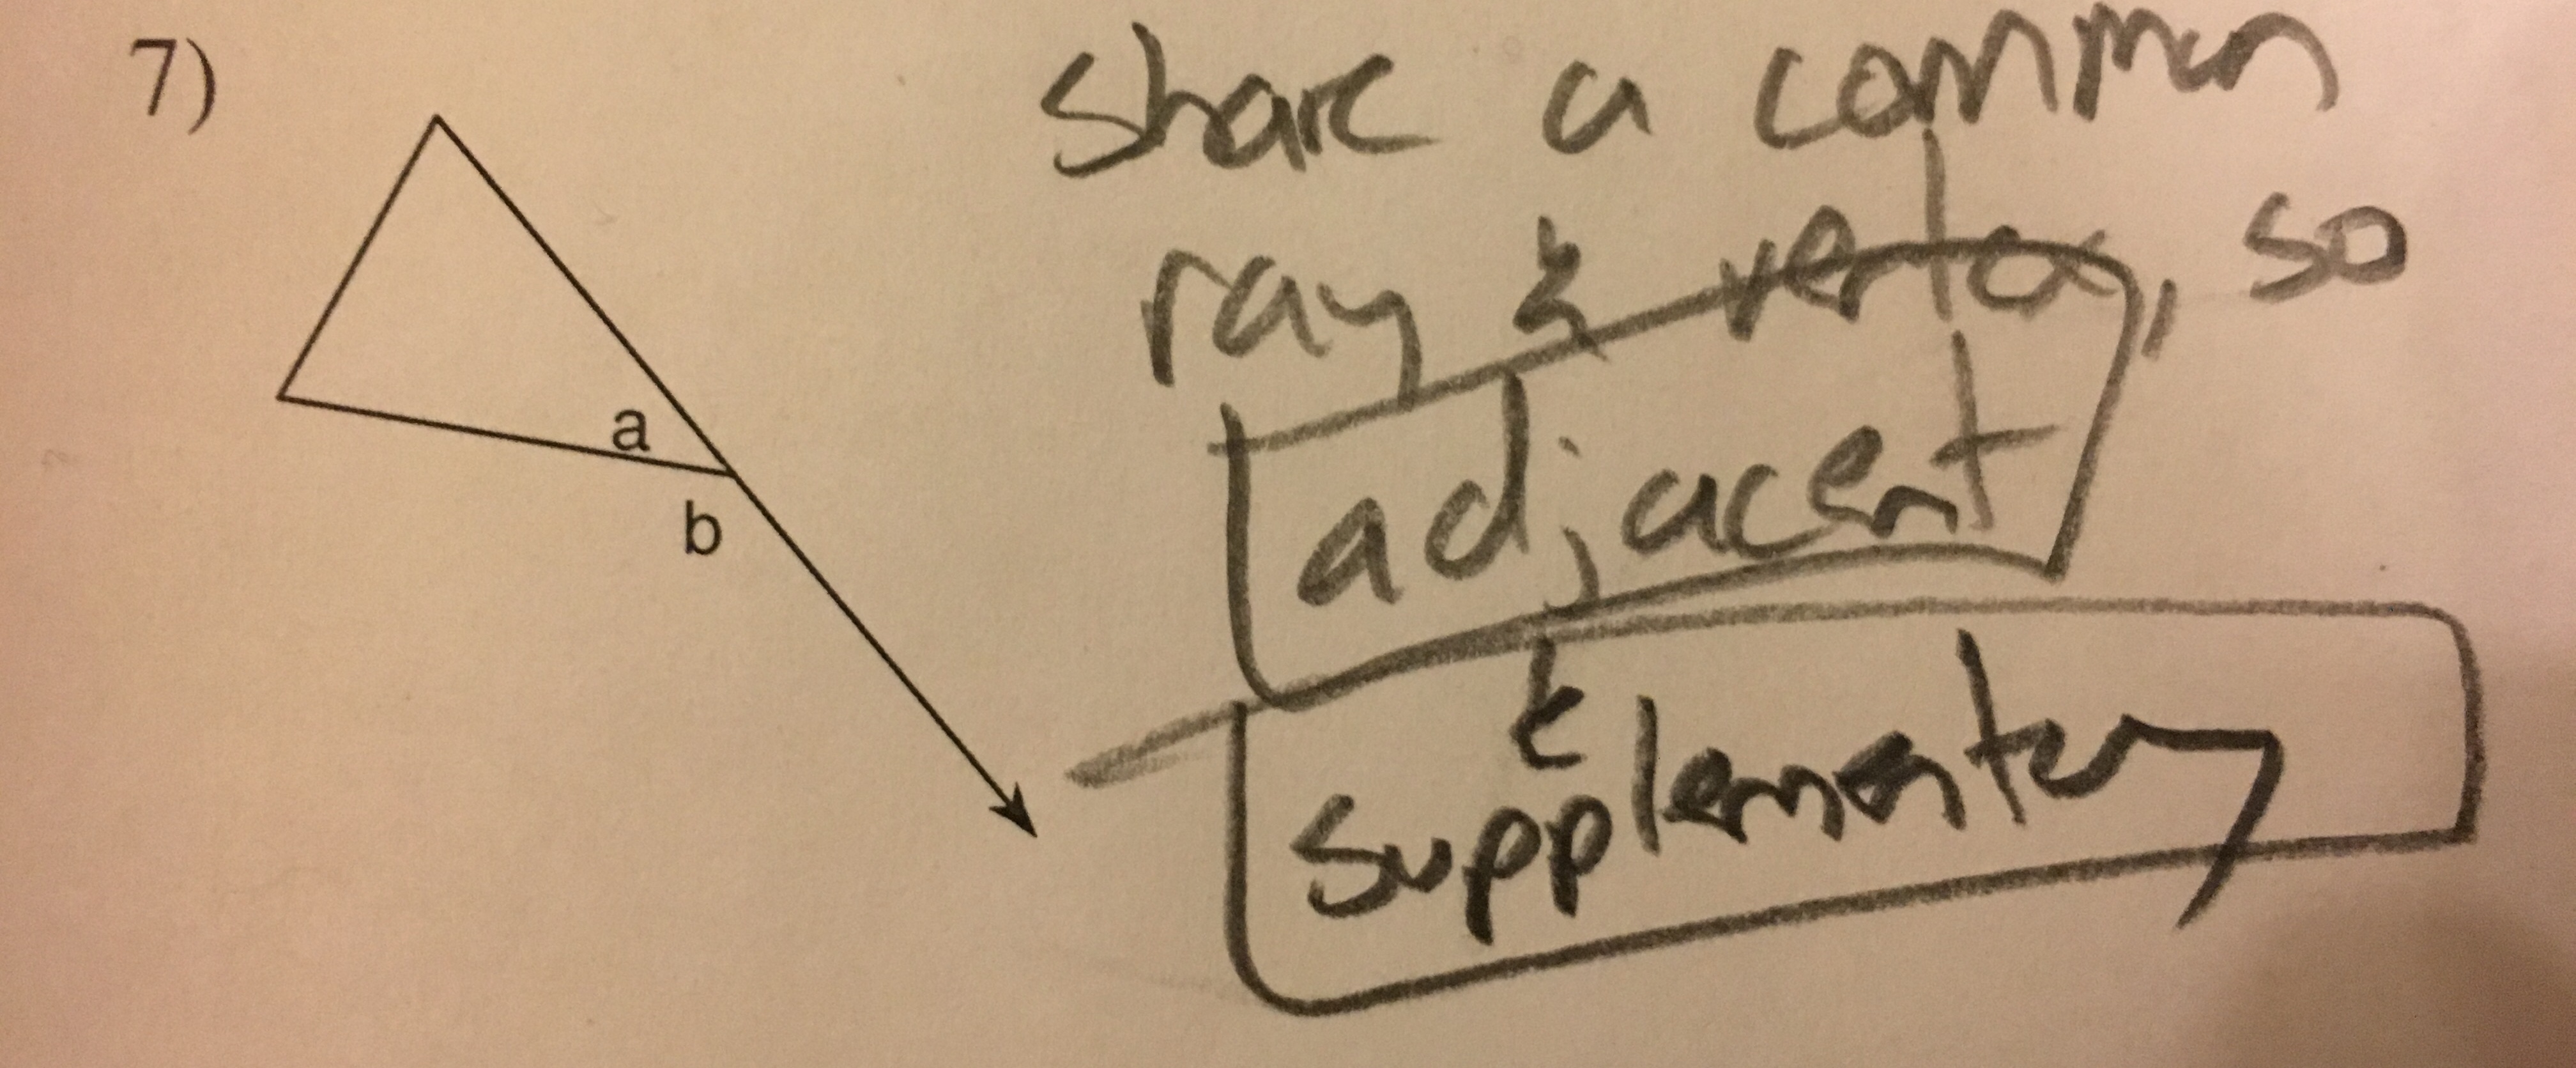 7)
share a common
ray & vertex, so
a
adjacent
b
&
supplementary